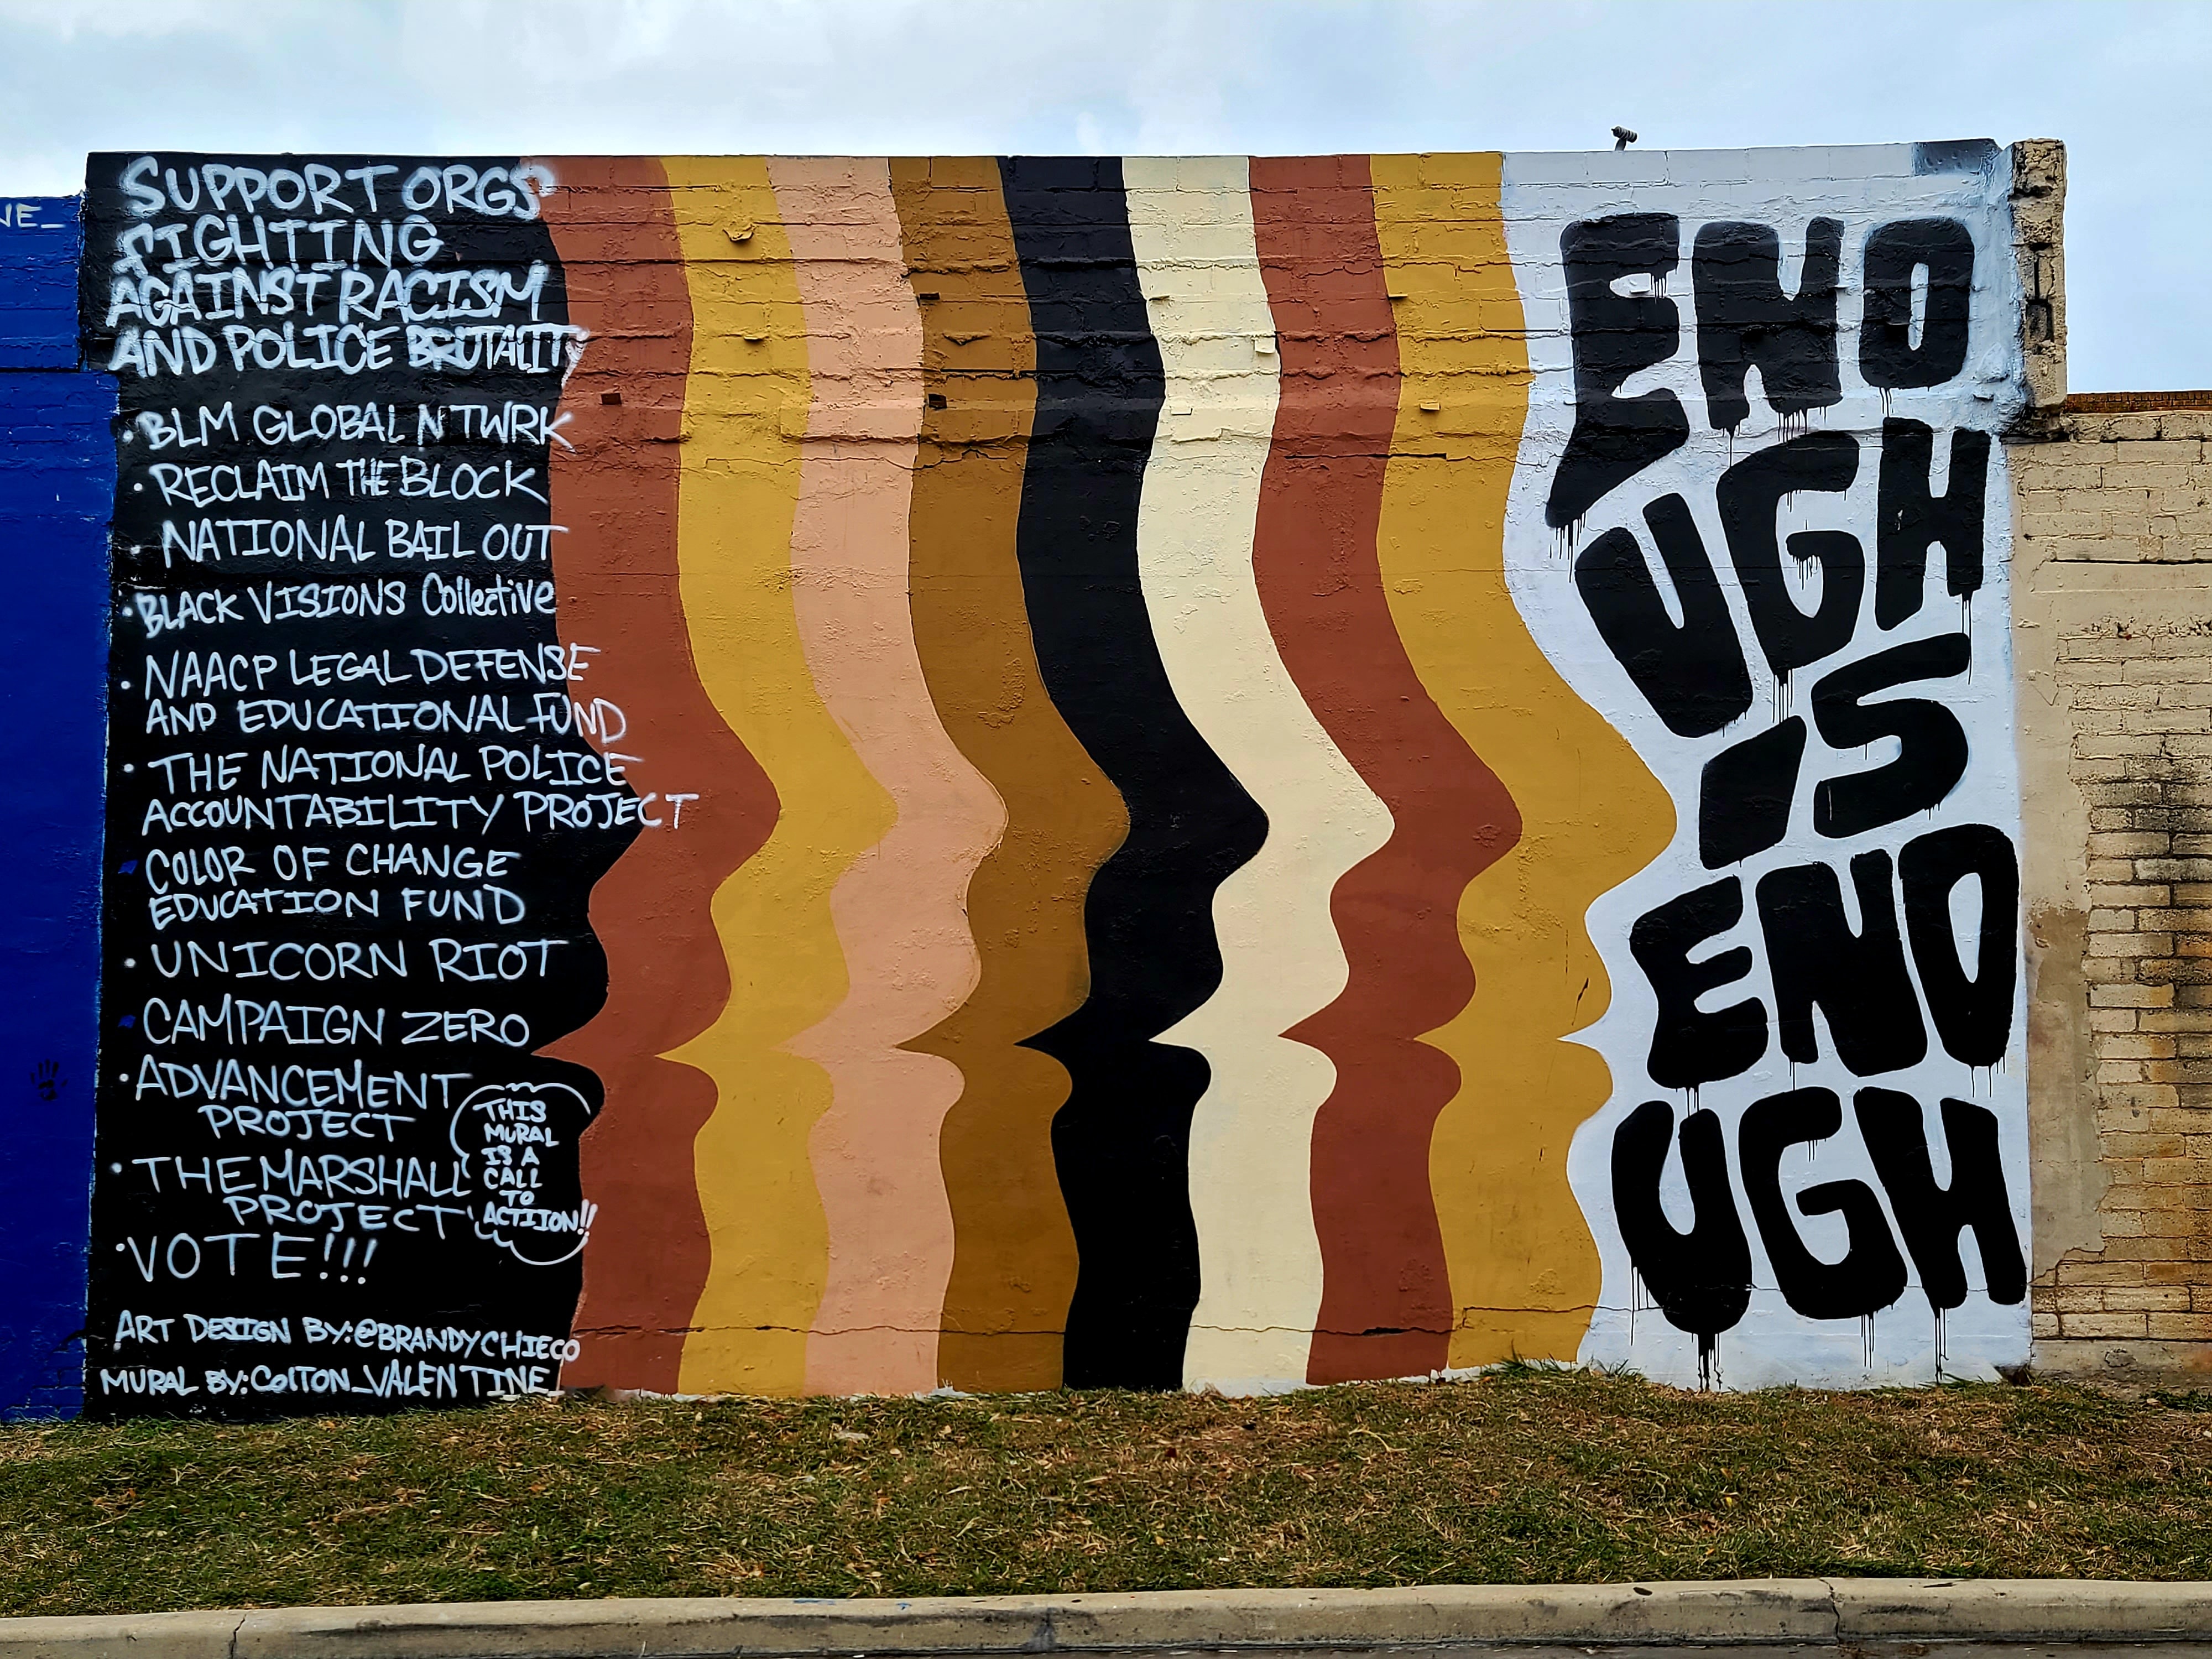 SUPPORT ORGS
FIGHTING
AGAINST RACISM
AND POLICE BRUTALITY
• BLM GLOBAL N TWRK
• RECLAIM THE BLOCK
• NATIONAL BAIL OUT
• BLACK VISIONS Collective
• NAACP LEGAL DEFENSE
AND EDUCATIONAL FUND
• THE NATIONAL POLICE
ACCOUNTABILITY PROJECT
COLOR OF CHANGE
EDUCATION FUND
• UNICORN RIOT
CAMPAIGN ZERO
• ADVANCEMENT
PROJECT
• THE MARSHALL
PROJECT
• VOTE!!!
THIS
MURAL
IS A
CALL
TO
ACTIION!!
ART DESIGN BY: @BRANDYCHIECO
MURAL BY: ColTON_VALENTINE_
ENO
UGH
IS
ENO
UGH